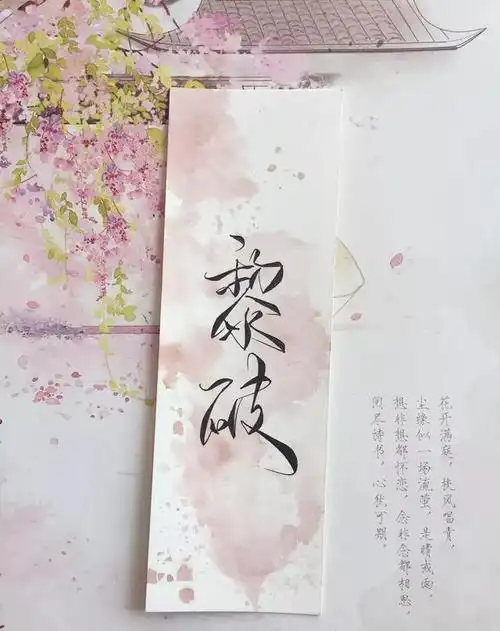 黎破
花开满庭，扶风留青，
尘缘似一场流萤，是晴或雨，
想非想都怀恋，念非念都相思，
阅尽诗书，心犹可期。